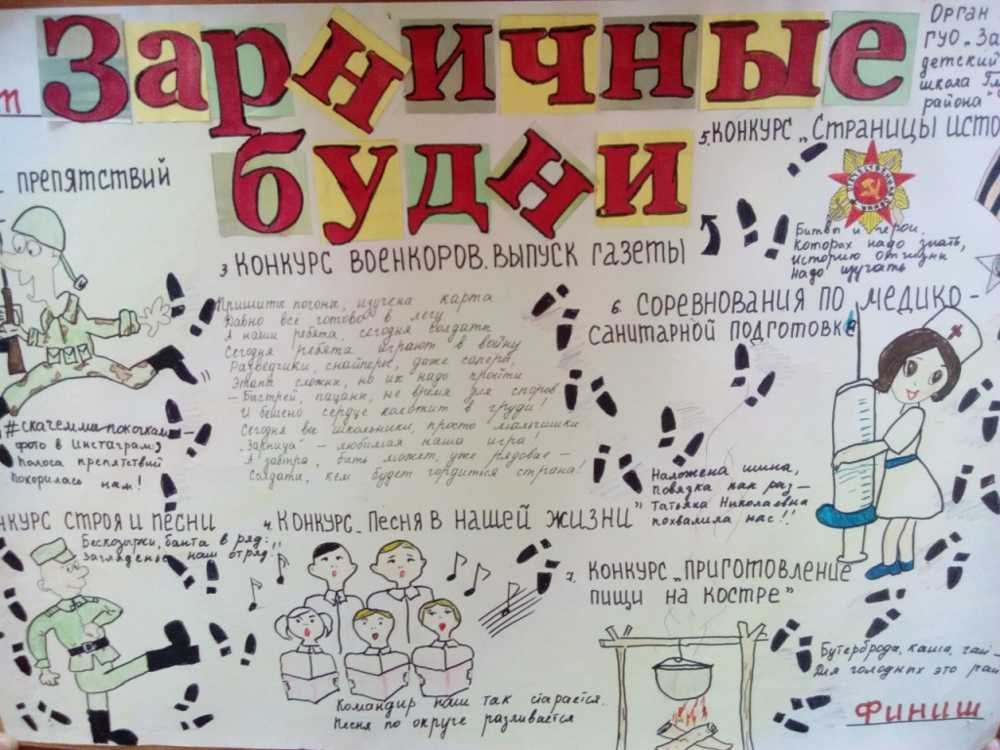 Зарничные
будни
Орган
ГУО „За
детский
школа
района"
препятствий
#скачемпокочкам –
фото в Инстаграм,
Полоса препятствий
Покорилась нам!
нкурс строя и песни
Бескозырки, банта в ряд:
Загляденье наш отряд!
3 Конкурс военкоров. Выпуск газеты
Пришиты погоны, изучена карта
Давно все готово в лесу
А наши ребята, сегодня солдаты
Сегодня ребята играют в войну
Разведчики, снайперы, даже саперы,
Этапы сложны, но их надо пройти
– Быстрей, пацаны, не время для споров
И бешено сердце колотит в груди!
Сегодня вы школьники, просто мальчишки
„Зарница" – любимая наша игра!
А завтра, быть может, уже рядовые –
Солдаты, кем будет гордиться страна!
4. Конкурс „Песня в нашей жизни"
Командир наш так старается.
Песня по округе разливается
5. Конкурс „Страницы исто
Отечественная
война
Битвы и герои,
Которых надо знать,
Историю отчизны
Надо изучать
6. Соревнования по медико-
санитарной подготовке
Наложена шина,
Повязка как раз –
Татьяна Николаевна
похвалила нас!
7. Конкурс „Приготовление
пищи на костре"
Бутерброды, каша, чай –
Для голодных это рай
Финиш